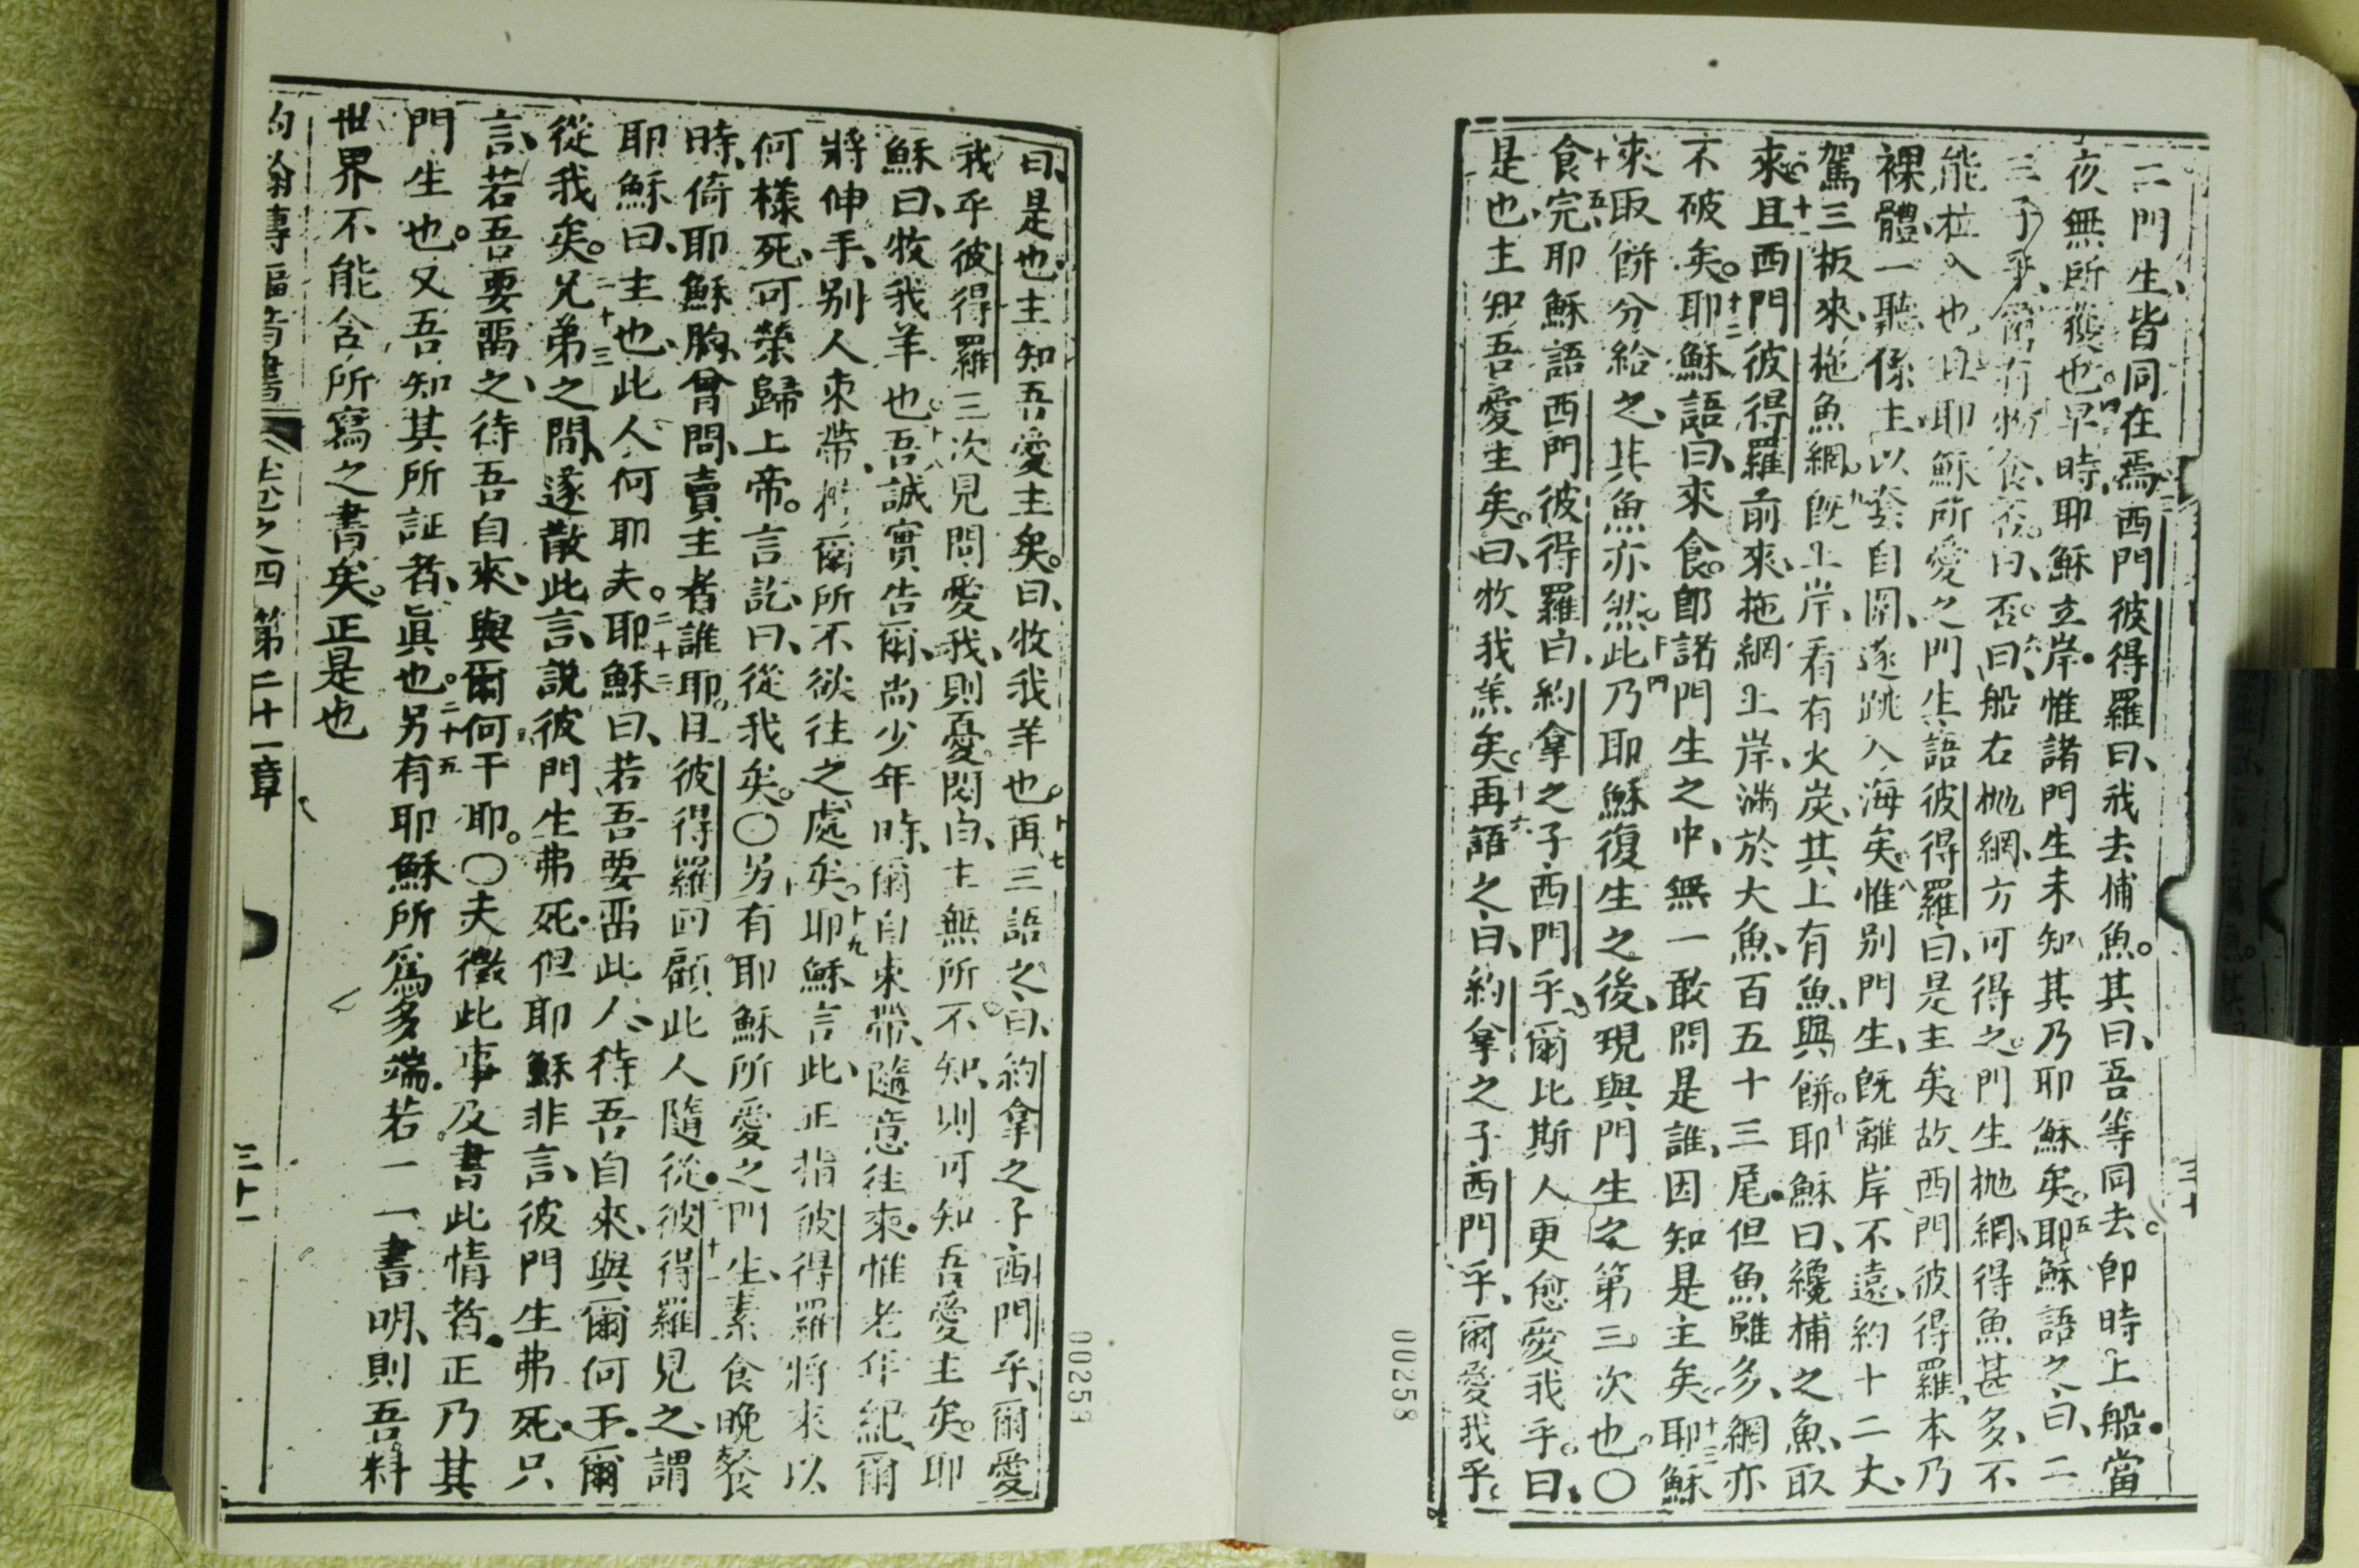 二門生、皆同在焉、西門彼得羅曰、我去捕魚。其曰、吾等同去。即時上船。當
夜無所獲也。四早時、耶穌立岸。惟諸門生未知其乃耶穌矣。五耶穌語之曰、二
三子乎、爾有物食否。曰、否。六曰、船右抛網、方可得之。門生抛網、得魚甚多、不
能拉入也。七且耶穌所愛之門生、語彼得羅曰、是主矣。故西門彼得羅、本乃
裸體、一聽係主、以套自圍、遂跳入海矣。八惟别門生、既離岸不遠、約十二丈、
駕三板來、拖魚網。九既上岸、看有火炭、其上有魚、與餅。十耶穌曰、纔捕之魚、取
來。十一且西門彼得羅前來、拖網上岸、滿於大魚、百五十三尾。但魚雖多、網亦
不破矣。十二耶穌語曰、來食。即諸門生之中、無一敢問是誰、因知是主矣。十三耶穌
來取餅分給之、其魚亦然。十四此乃耶穌復生之後、現與門生之第三次也。〇
十五食完、耶穌語西門彼得羅曰、約拿之子西門乎、爾比斯人更愈愛我乎。曰、
是也、主知吾愛主矣。曰、牧我羔矣。十六再語之曰、約拿之子西門乎、爾愛我乎。
00258
曰、是也、主知吾愛主矣。曰、牧我羊也。十七再三語之曰、約拿之子西門乎、爾愛
我乎。彼得羅三次見問愛我、則憂悶曰、主無所不知、則可知吾愛主矣。耶
穌曰、牧我羊也。十八吾誠實告爾、尚少年時、爾自束帶、隨意往來。惟老年紀、爾
將伸手、别人束帶、爾所不欲往之處矣。十九耶穌言此、正指彼得羅將來以
何樣死、可榮歸上帝。言訖、曰、從我矣。〇另有耶穌所愛之門生、素食晚餐
時、倚耶穌胸、曾問、賣主者誰耶。且彼得羅回顧此人隨從。二十一彼得羅見之、謂
耶穌曰、主也、此人何耶夫。二十二耶穌曰、若吾要畱此人、待吾自來、與爾何干。爾
從我矣。二十三兄弟之間、遂散此言、說彼門生弗死。但耶穌非言、彼門生弗死。只
言、若吾要畱之、待吾自來、與爾何干耶。〇夫徵此事、及書此情者。正乃其
門生也。又吾知其所証者、眞也。二十五另有耶穌所爲多端。若一一書明、則吾料
世界不能含所寫之書矣。正是也
約翰傳福音書 卷之四 第二十一章 三十一
00259
三十